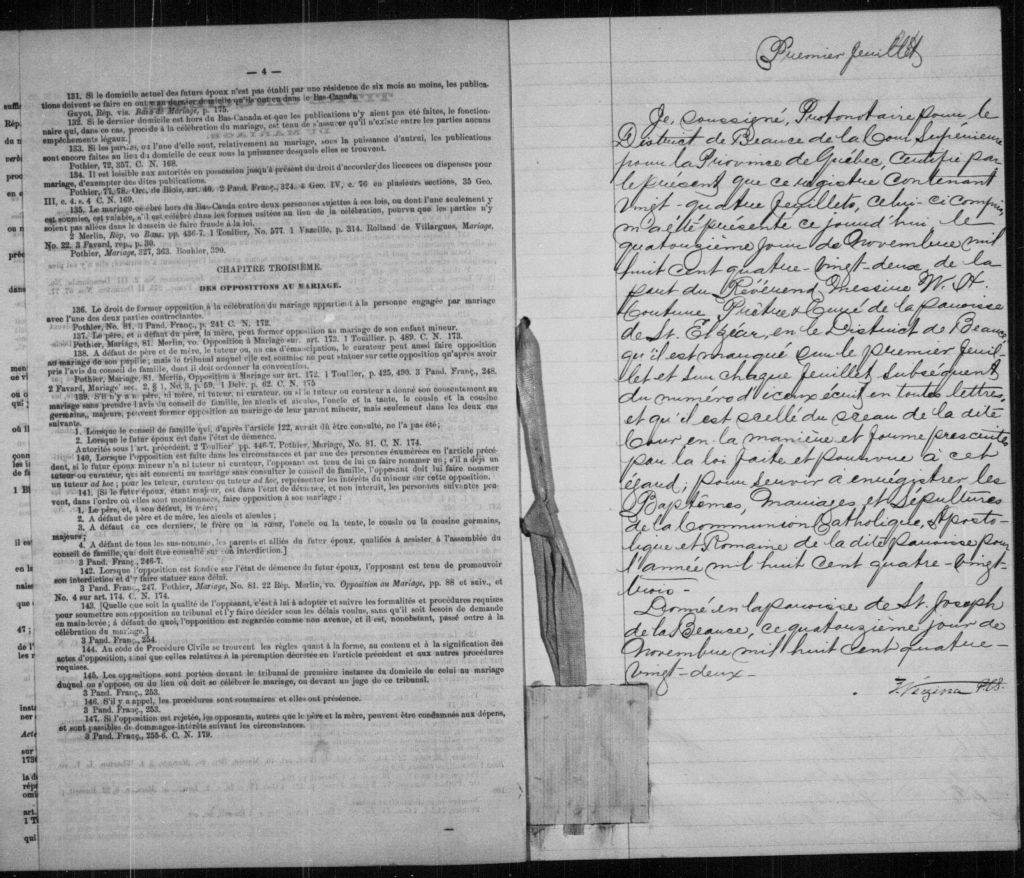 — 4 —
131. Si le domicile actuel des futurs époux n'est pas établi par une résidence de six mois au moins, les publica-
tions doivent se faire en outre au dernier domicile qu'ils ont eu dans le Bas-Canada.
Guyot, Rép. vis. Bans de Mariage, p. 175.
132. Si le dernier domicile est hors du Bas-Canada et que les publications n'y aient pas été faites, le fonction-
naire qui, dans ce cas, procède à la célébration du mariage, est tenu de s'assurer qu'il n'existe entre les parties aucuns
empêchements légaux.
133. Si les parties, ou l'une d'elle sont, relativement au mariage, sous la puissance d'autrui, les publications
sont encore faites au lieu du domicile de ceux sous la puissance desquels elles se trouvent.
Pothier, 72, 357. C. N. 168.
134. Il est loisible aux autorités en possession jusqu'à présent du droit d'accorder des licences ou dispenses pour
mariage, d'exempter des dites publications.
Pothier, 77, 78. Orc. de Blois, art. 40. 2 Pand. Franç., 324. 4 Geo. IV, c. 76 en plusieurs sections, 35 Geo.
III, c. 4. s. 4 C. N. 169.
135. Le mariage célébré hors du Bas-Canda entre deux personnes sujettes à ses lois, ou dont l'une seulement y
est soumise, est valable, s'il est célébré dans les formes usitées au lieu de la célébration, pourvu que les parties n'y
soient pas allées dans le dessein de faire fraude à la loi.
2 Merlin, Rép. vo Bans. pp. 436-7. 1 Toullier, No. 577. 1 Vazeille, p. 314. Rolland de Villargues, Mariage,
No. 22. 3 Favard, rép., p. 30.
Pothier, Mariage, 327, 363. Bouhier, 390.
CHAPITRE TROISIÈME.
DES OPPOSITIONS AU MARIAGE.
136. Le droit de former opposition à la célébration du mariage appartient à la personne engagée par mariage
avec l'une des deux parties contractantes.
Pothier, No. 81. 3 Pand. Franç., p. 241 C. N. 172.
137. Le père, et à défaut du père, la mère, peut former opposition au mariage de son enfant mineur.
Pothier, Mariage, 81. Merlin, vo. Opposition à Mariage sur. art. 173. 1 Toullier, p. 489. C. N. 173.
138. A défaut de père et de mère, le tuteur ou, au cas d'émancipation, le curateur peut aussi faire opposition
au mariage de son pupille; mais le tribunal auquel elle est soumise ne peut statuer sur cette opposition qu'après avoir
pris l'avis du conseil de famille, dont il doit ordonner la convocation.
Pothier, Mariage, 81. Merlin, Opposition à Mariage sur art. 172. 1 Toullier, p. 425, 490. 3 Pand. Franç., 248.
2 Favard, Mariage sec. 2, § 1, No. 3, p. 59, 1 Delv. p. 62. C. N. 175
139. S'il n'y a ni père, ni mère, ni tuteur, ni curateur, ou si le tuteur ou curateur a donné son consentement au
mariage sans prendre l'avis du conseil de famille, les aïeuls et aïeules, l'oncle et la tante, le cousin et la cousine
germains, majeurs, peuvent former opposition au mariage de leur parent mineur, mais seulement dans les deux cas
suivants.
1. Lorsque le conseil de famille qui, d'après l'article 122, aurait dû être consulté, ne l'a pas été;
2. Lorsque le futur époux est dans l'état de démence.
Autorités sous l'art. précédent. 2 Toullier pp. 446-7. Pothier, Mariage, No. 81. C. N. 174.
140. Lorsque l'opposition est faite dans les circonstances et par une des personnes énumérées en l'article précé-
dent, si le futur époux mineur n'a ni tuteur ni curateur, l'opposant est tenu de lui en faire nommer un; s'il a déjà un
tuteur ou curateur, qui ait consenti au mariage sans consulter le conseil de famille, l'opposant doit lui faire nommer
un tuteur ad hoc; pour les tuteur, curateur ou tuteur ad hoc, représenter les intérêts du mineur sur cette opposition.
141. [Si le futur époux, étant majeur, est dans l'état de démence, et non interdit, les personnes suivantes peu-
vent, dans l'ordre où elles sont mentionnées, faire opposition à son mariage:
1. Le père, et, à son défaut, la mère;
2. A défaut de père et de mère, les aïeuls et aïeules;
3. A défaut de ces derniers, le frère ou la sœur, l'oncle ou la tente, le cousin ou la cousine germains,
majeurs;
4. A défaut de tous les sus-nommés, les parents et alliés du futur époux, qualifiés à assister à l'assemblée du
conseil de famille, qui doit être consulté sur son interdiction.]
3 Pand. Franç., 246-7.
142. Lorsque l'opposition est fondée sur l'état de démence du futur époux, l'opposant est tenu de promouvoir
son interdiction et d'y faire statuer sans délai.
3 Pand. Franç., 247. Pothier, Mariage, No. 81. 22 Rép. Merlin, vo. Opposition au Mariage, pp. 88 et suiv., et
No. 4 sur art. 174. C. N. 174.
143. [Quelle que soit la qualité de l'opposant, c'est à lui à adopter et suivre les formalités et procédures requises
pour soumettre son opposition au tribunal et l'y faire décider sous les délais voulus, sans qu'il soit besoin de demande
en main-levée; à défaut de quoi, l'opposition est regardée comme non avenue, et il est, nonobstant, passé outre à la
célébration du mariage.]
3 Pand. Franç., 254.
144. Au code de Procédure Civile se trouvent les règles quant à la forme, au contenu et à la signification des
actes d'opposition, ainsi que celles relatives à la péremption décrétée en l'article précédent et aux autres procédures
requises.
145. Les oppositions sont portées devant le tribunal de première instance du domicile de celui au mariage
duquel on s'oppose, ou du lieu où doit se célébrer le mariage, ou devant un juge de ce tribunal.
3 Pand. Franç., 253.
146. S'il y a appel, les procédures sont sommaires et elles ont préséance.
3 Pand. Franç., 253.
147. Si l'opposition est rejetée, les opposants, autres que le père et la mère, peuvent être condamnés aux dépens,
et sont passibles de dommages-intérêts suivant les circonstances.
3 Pand. Franç., 255-6. C. N. 179.
Premier feuillet
Je, soussigné, Protonotaire pour le
District de Beauce de la Cour Supérieure
pour la Province de Québec, certifie par
le présent que ce registre contenant
vingt-quatre feuillets, celui-ci compris,
m'a été présenté ce jourd'hui le
quatorzième jour de Novembre mil
huit cent quatre-vingt-deux, de la
part du Révérend Messire W. H.
Couture, Prêtre & Curé de la paroisse
de St. Elzéar, en le District de Beauce,
qu'il est marqué sur le premier feuil-
let et sur chaque feuillet subséquent
du numéro d'iceux écrit en toutes lettres,
et qu'il est scellé du sceau de la dite
Cour en la manière et forme prescrites
par la loi faite et pourvue à cet
égard; pour servir à enrégistrer les
Baptêmes, Mariages et Sépultures
de la Communion Catholique, Aposto-
lique et Romaine de la dite paroisse pour
l'année mil huit cent quatre-vingt-
trois.-
Donné en la paroisse de St. Joseph
de la Beauce, ce quatorzième jour de
Novembre mil huit cent quatre-
vingt-deux-
Z. Vézina PCS.